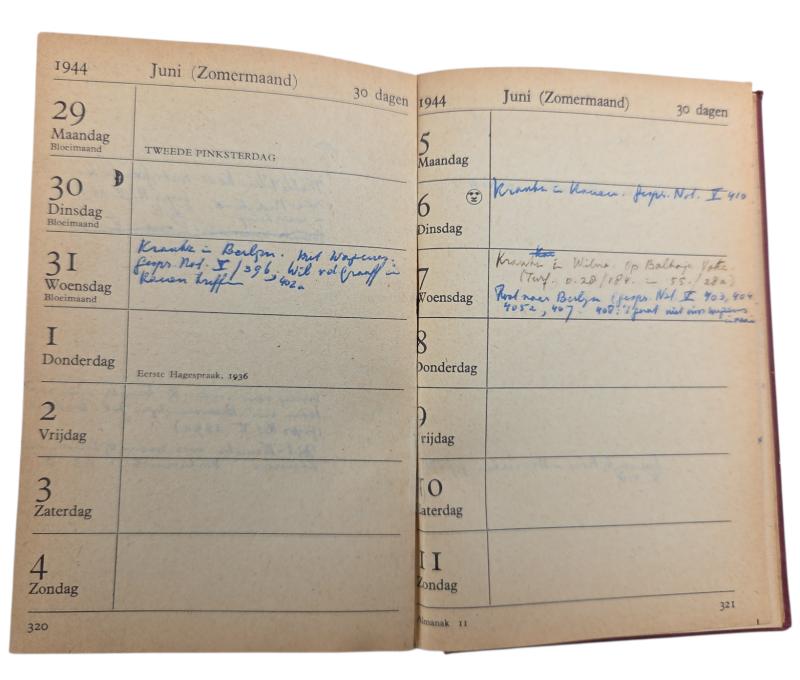 1944 Juni (Zomermaand) 30 dagen
29
Maandag
Bloeimaand
TWEEDE PINKSTERDAG
30
Dinsdag
Bloeimaand
31
Woensdag
Bloeimaand
in Berlijn.
gespr. Not. V/396. Wil
in
Kauen treffen 402a
1
Donderdag
Eerste Hagespraak, 1936
2
Vrijdag
3
Zaterdag
4
Zondag
320
1944 Juni (Zomermaand) 30 dagen
5
Maandag
6
Dinsdag
in Kauen. gespr. Not. V 410
7
Woensdag
in Wilna. op
0.28/184. 55. /28a)
naar Berlijn (gespr. Not V 403, 404
405a, 407 408: niet
8
Donderdag
9
rijdag
10
aterdag
11
Zondag
Almanak 11
321